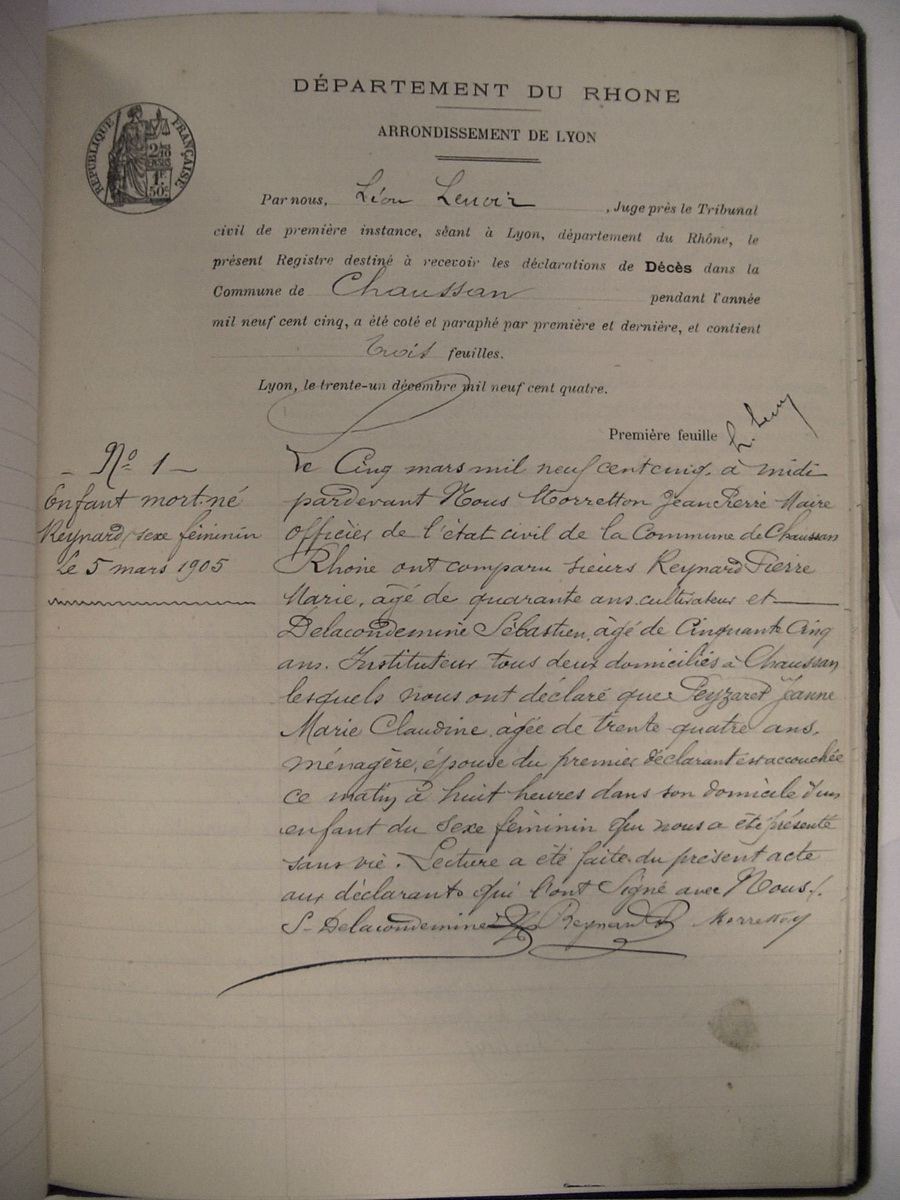 DÉPARTEMENT DU RHONE
ARRONDISSEMENT DE LYON
RÉPUBLIQUE FRANÇAISE
2/10
EN SUS
1F
50c
Par nous, Léon Lenoir, Juge près le Tribunal
civil de première instance, séant à Lyon, département du Rhône, le
présent Registre destiné à recevoir les déclarations de Décès dans la
Commune de Chaussan pendant l'année
mil neuf cent cinq, a été coté et paraphé par première et dernière, et contient
trois feuilles.
Lyon, le trente-un décembre mil neuf cent quatre.
Première feuille
No 1
Enfant mort né
Reynard, sexe féminin
le 5 mars 1905
Le Cinq mars mil neuf cent cinq, à midi
pardevant Nous Morretton Jean Pierre Maire
officier de l'état civil de la Commune de Chaussan
Rhône ont comparu sieurs Reynard Pierre
Marie, âgé de quarante ans, cultivateur et
Delacondemine Sébastien, âgé de Cinquante Cinq
ans. Instituteur tous deux domiciliés à Chaussan
lesquels nous ont déclaré que Peyzaret Jeanne
Marie Claudine, âgée de trente quatre ans,
ménagère, épouse du premier déclarant est accouchée
ce matin à huit heures dans son domicile d'un
enfant du sexe féminin qui nous a été présenté
sans vie. Lecture a été faite du présent acte
aux déclarants qui l'ont Signé avec Nous.
S. Delacondemine Reynard P Morretton